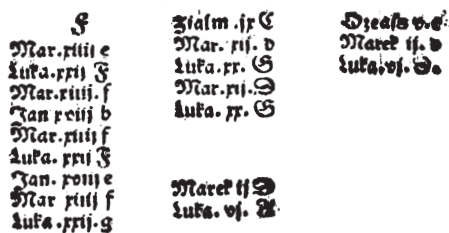 F
Mar.xiiij e
Luka.xxij F
Mar.xiiij.f
Jan xviij b
Mar.xiiij f
Luka.xxij F
Jan. xviij e
Mar xiiij f
Luka.xxij.g
Žialm .jx C
Mar. xij. d
Luka.xx. G
Mar.xij.D
Luka. xx. G
Marek ij D
Luka. vj. A
Ozeáss v.c
Marek ij. d
Luka.vj. D.